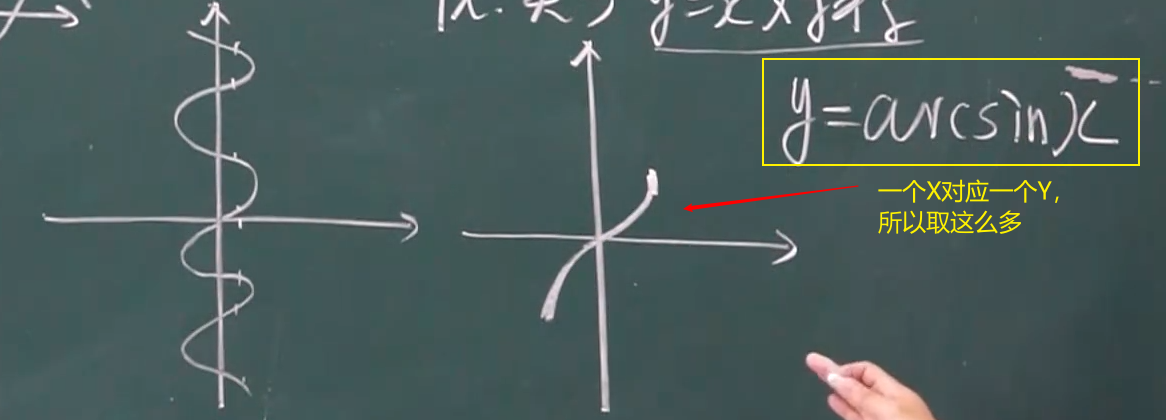 y=arcsinx
一个X对应一个Y，
所以取这么多